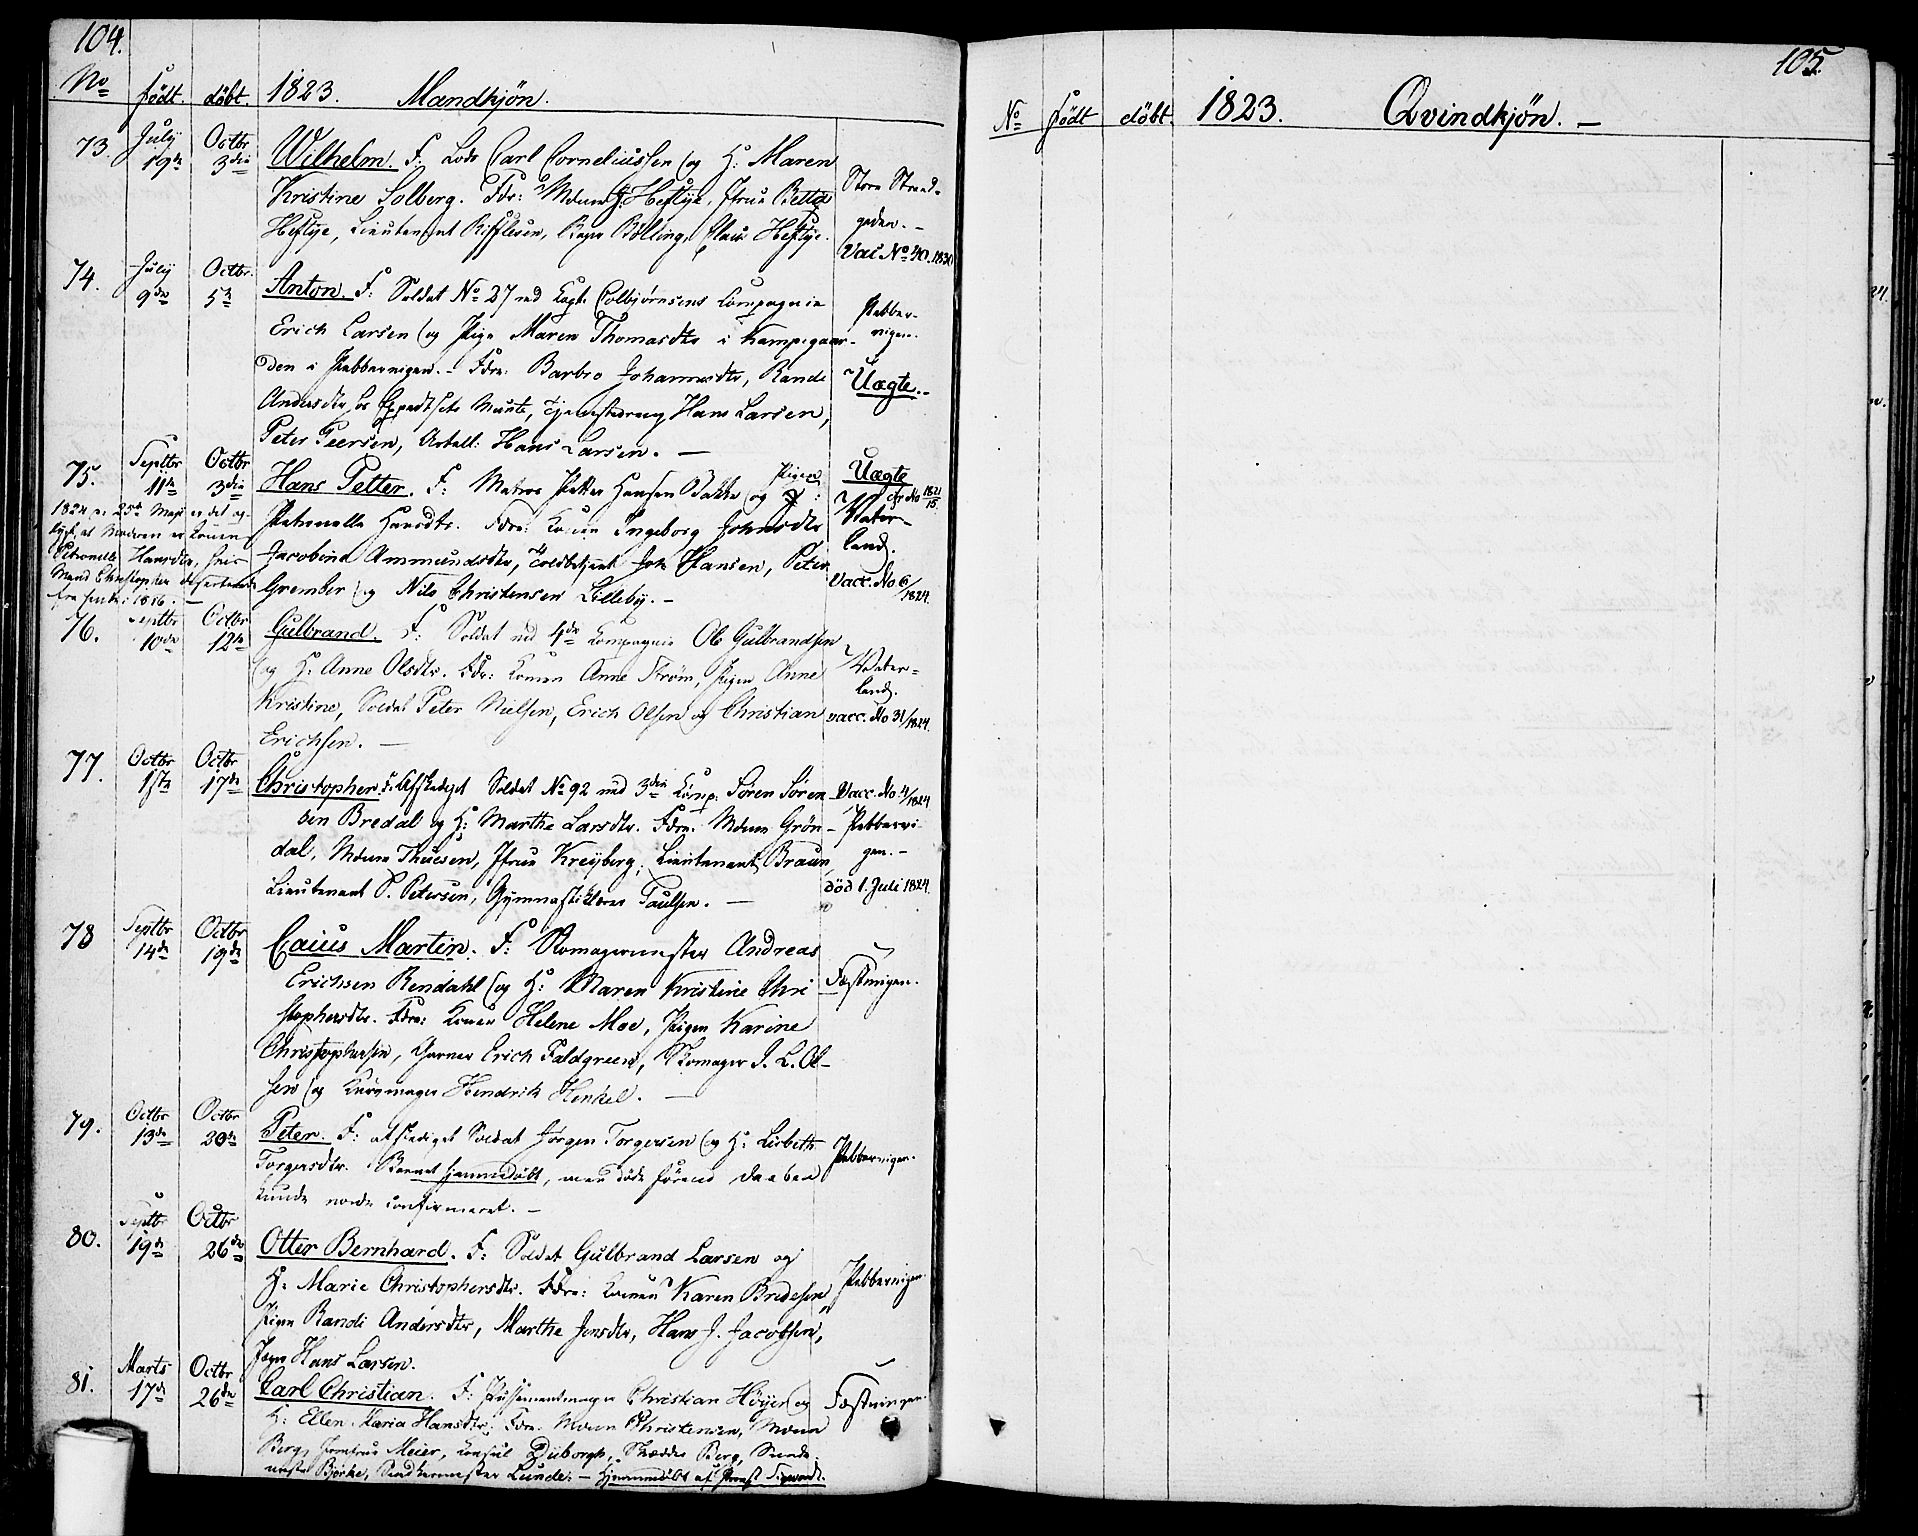 104.
No født. döbt. 1823. Mandkjön.
73. July 19de Octbr 3die Wilhelm. F: Lods Carl Corneliussen og H: Maren
Kristine Solberg. Fdr: Mdme J. Heftye, Jfrue Bettÿ
Heftye, Lieutenant Biffelsen, Bölling, Heftye.
Store Strand-
gaden. -
Vac No 40. 1830
74. July 9de Octbr. 5te Anton. F: Soldat No 27 ved Capt. Colbjörnsens Compagnie
Erich Larsen og Pige Maren Thomasdtr i Kampegaar-
den i Pebbervigen. - Fdre: Barbro Johannesdtr, Rande
Andersdtr, Tjenestedreng Hans Larsen,
Peter Peersen, Hans Larsen. -
Pebber-
vigen.
Uægte. -
75. Septbr 11te Octbr 3die Hans Petter. F: Matros Petter Hansen Bakke og Pigen
Petronelle Hansdtr. Fdre: Konen Ingeborg Johnsdtr
Jacobine Ammundsdtr, Toldbetjent Joh Hansen, Peter
Grember og Nils Christensen Lilleby. -
Uægte
cfr No 1821/15.
Vater-
land.
Vacc. No 6/1824.
1824 25de Maji er det op-
lyst, at Moderen er Konen
Petronelle Hansdtr, hvis
Mand Christopher deserterede
fra 1816. -
76. Septbr 10de Octbr 12te Gulbrand. F: Soldat ved 4de Compagnie Ole Gulbrandsen
og H: Anne Olsdtr. Fdr: Konen Anne Ström, Pigen Anne
Kristine, Soldat Peter Nielsen, Erich Olsen og Christian
Erichsen. -
Vater-
land.
vacc. No 31/1824.
77. Octbr 1ste Octbr 17de Christopher. F: Afskediget Soldat No 92 ved 3die Komp: Sören Sören
sen Bredal og H: Marthe Larsdtr. Fdre. Mdme Grön-
dal, Mdme Thuesen, Jfrue Kreÿberg, Lieutenant Braun,
Lieutenant P. Petersen, Gymnastiklærer Paulsen. -
Vacc. No 4/1824
Pebbervi-
gen. -
död 1. Juli 1824.
78 Septbr 14de Octbr 19de Caius Martin. F: Skomagermester Andreas
Erichsen Rendahl og H: Maren Kristine Chri
stophersdtr. Fdre: Konen Helene Moe, Pigen Karine
Christophersen, Garver Erich Faldgreen, Skomager J. L. Ol-
sen og Kurvmager Hendrik Henkel. -
Fæstningen.
79. Octbr 13de Octbr 20de Peter. F: afskediget Soldat Jörgen Torgersen og H: Lisbeth
Torgersdtr. Barnet hjemmedöbt, men döde förend Daaben
kunde vorde confirmeret. -
Pebbervigen.
80. Septbr 19de Octbr 26de Otter Bernhard. F: Soldat Gulbrand Larsen og
H: Marie Christophersdtr. Fdre: Konen Karen Bredesen,
Pigen Randi Andersdtr, Marthe Jensdtr, Hans J. Jacobsen,
Hans Larsen.
Pebbervigen.
81. Marts 17de Octbr 26de Carl Christian. F: Possementmager Christian Höyer og
H: Ellen Maria Hansdtr. Fdr. Mdme Christensen, Mdme
Berg, Jomfrue Meier, Konsul Dÿborgh, Skrædder Berg,
Björke, Sadelmester Lunde. - Hjemmedöbt af Præst
Fæstningen.
105.
No født döbt. 1823. Qvindkjön. -